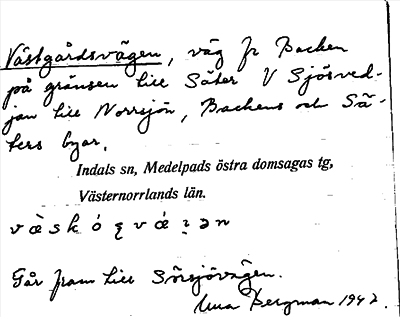 Västgårdsvägen, väg fr Backen
på gränsen till Säter V Sjösved-
jan till Norrsjön, Backens och Sä-
ters byar.
Indals sn, Medelpads östra domsagas tg,
Västernorrlands län.
Går fram till Sörsjövägen.
Bergman 1942.